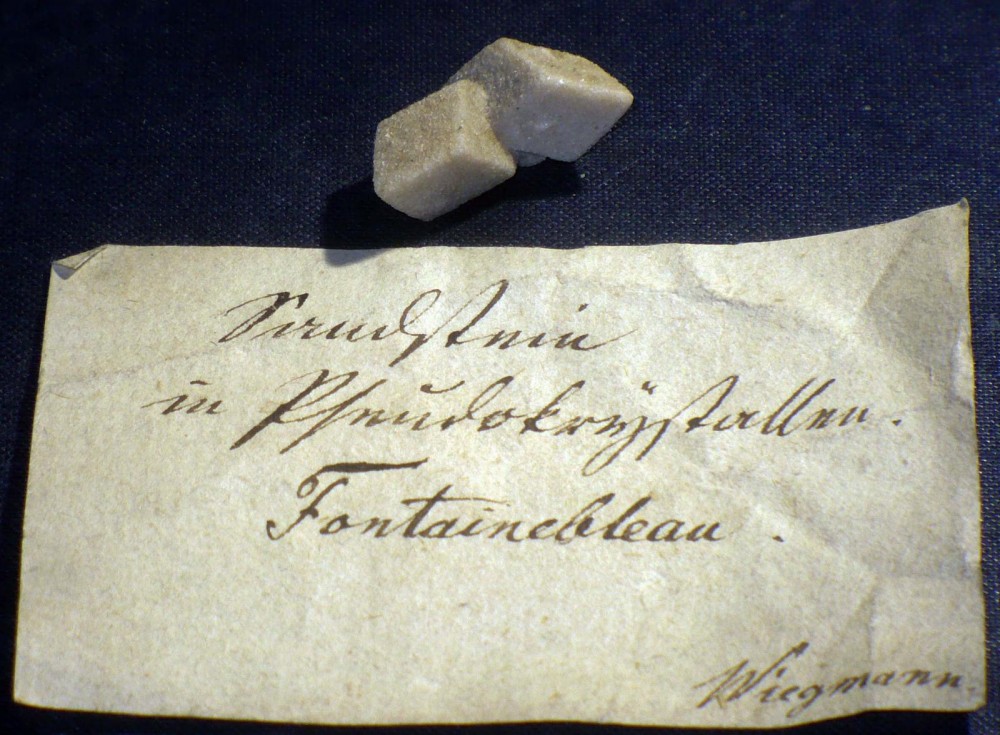 Sandstein
in Pseudokrystallen.
Fontainebleau.
Wiegmann.